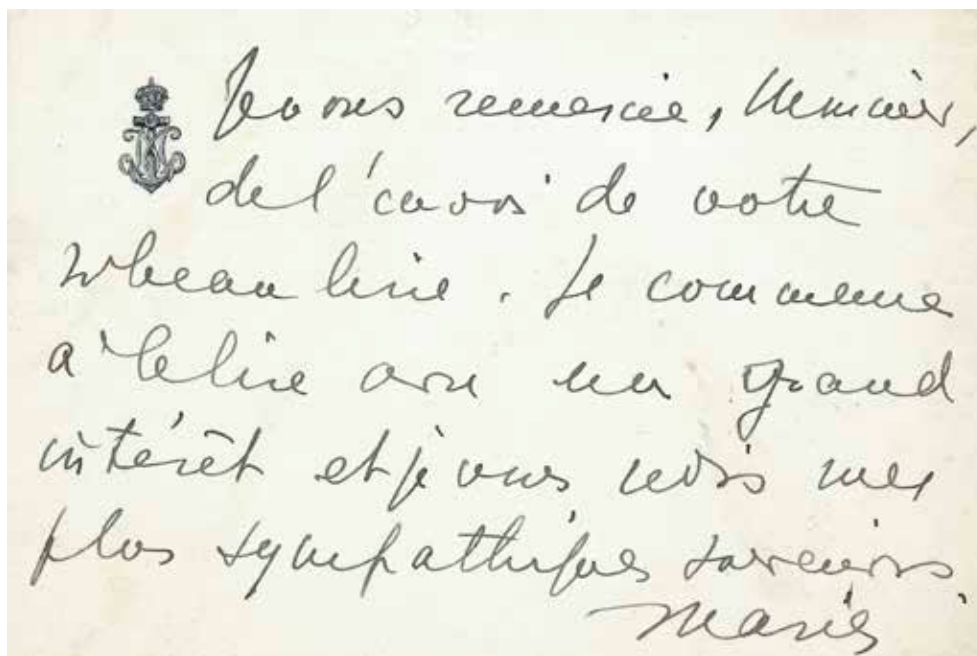 Je vous remercie, Monsieur,
de l'envoi de votre
si beau livre. Je commence
à le lire avec un grand
intérêt et je vous redis mes
plus sympathiques souvenirs
Marie